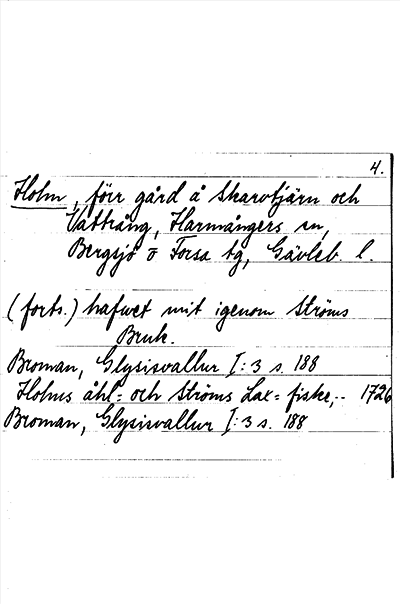 4.
Holm, förr gård å Skarvtjärn och
Vattrång, Harmångers sn,
Bergsjö o Forsa tg, Gävleb. l.
(forts.) hafwet mit igenom Ströms
Bruk.
Broman, Glysisvallur I:3 s. 188
Holms åhl= och Ströms Lax=fiske,-- 1726
Broman, Glysisvallur I:3 s. 188